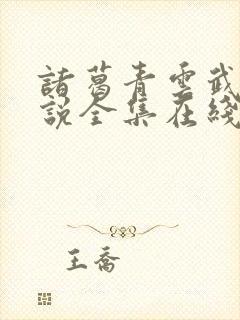 諸葛青雲武
說全集在綫
王喬